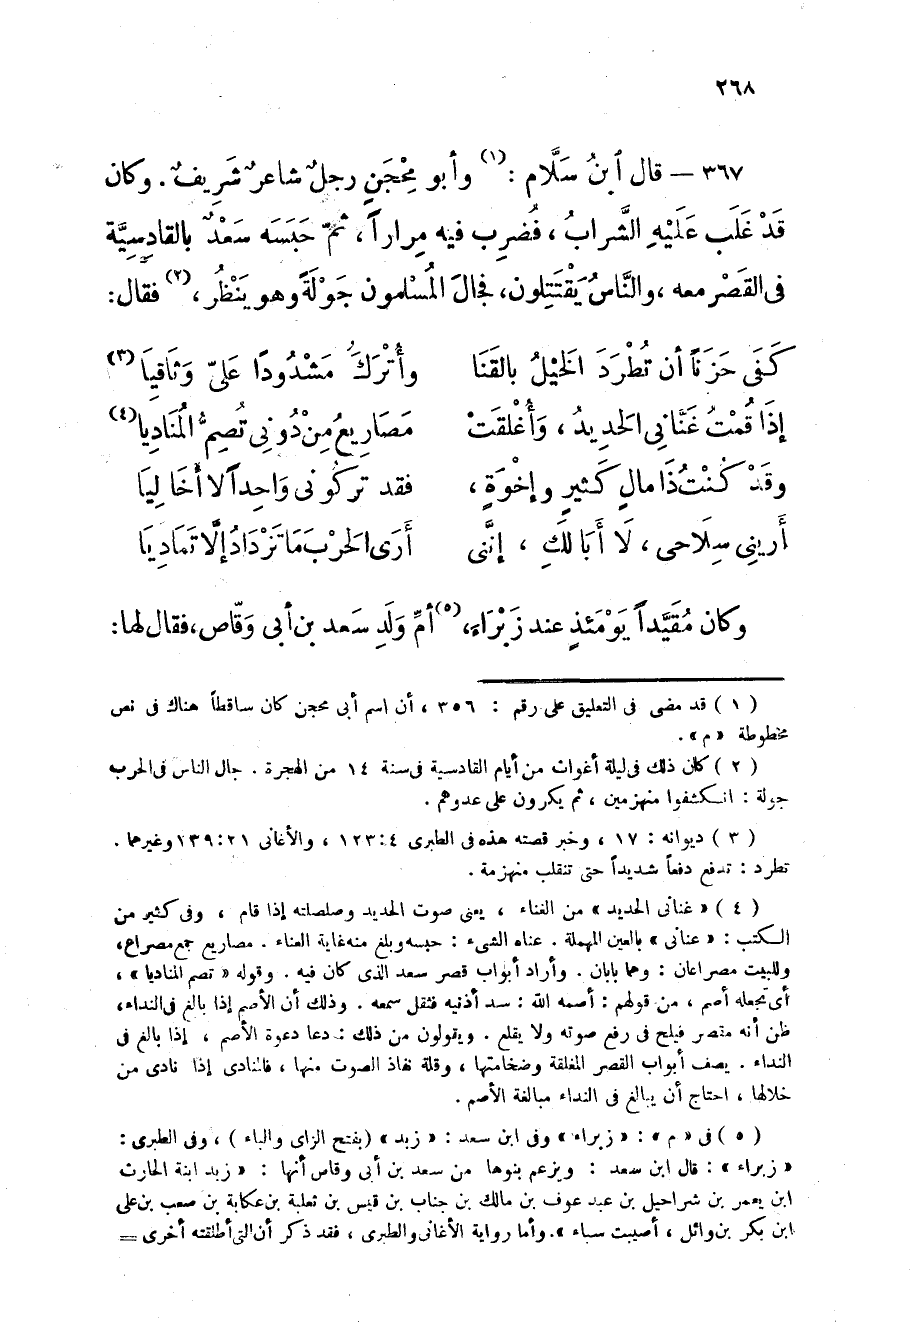 ٢٦٨
٣٦٧ — قال ٱبنُ سَلَّام : (١) وأبو مِحْجَنٍ رجلٌ شاعرٌ شَرِيفٌ . وكان
قَدْ غَلَب عَلَيْهِ الشَّرابُ ، فَضُرِب فيه مِراراً ، ثمّ حَبَسَه سَعْدٌ بالقادِسِيَّة
فى القَصْر معه ، والنَّاسُ يَقْتَتِلون ، فجالَ المُسْلمون جَوْلَةً وهو يَنْظُر ، (٢) فقال :
كَفَى حَزَناً أن تُطْرَدَ الخيْلُ بالقَنَا وأُتْرَكَ مَشْدُودًا عَلىّ وَثَاقيَا (٣)
إذَا قُمْتُ غَنَّانِى الحَدِيدُ ، وَأُغْلقَتْ مَصَارِيعُ مِنْ دُونِى تُصِمُّ المُنَاديا (٤)
وقَدْ كُنْتُ ذَا مالٍ كَثيرٍ وإخْوَةٍ ، فقد تركُونى وَاحِداً لا أخَا لِيَا
أَرِينِى سِلَاحى ، لَا أَبَا لَكِ ، إنَّنى أَرَى الحَرْبَ مَا تَزْدَادُ إلَّا تَمَادِيَا
وكان مُقَيَّداً يَوْمَئذٍ عند زَبْرَاء ، (٥) أمِّ وَلَدِ سَعد بن أبى وَقّاص ، فقال لها :
( ١ ) قد مضى فى التعليق على رقم : ٣٥٦ ، أن اسم أبى محجن كان ساقطاً هناك فى نص
مخطوطة « م » .
( ٢ ) كان ذلك فى ليلة أغوات من أيام القادسية فى سنة ١٤ من الهجرة . جال الناس فى الحرب
جولة : انكشفوا منهزمين ، ثم يكرون على عدوهم .
( ٣ ) ديوانه : ١٧ ، وخبر قصته هذه فى الطبرى ٤ : ١٢٣ ، والأغانى ٢١ : ١٣٩ وغيرهما .
تطرد : تدفع دفعاً شديداً حتى تنقلب منهزمة .
( ٤ ) « غنانى الحديد » من الغناء ، يعنى صوت الحديد وصلصلته إذا قام ، وفى كثير من
الكتب : « عنانى » بالعين المهملة . عناه الشىء : حبسه وبلغ منه غاية العناء . مصاريع جمع مصراع ،
وللبيت مصراعان : وهما بابان . وأراد أبواب قصر سعد الذى كان فيه . وقوله « تصم المناديا » ،
أى تجعله أصم ، من قولهم : أصمه الله : سد أذنيه فثقل سمعه . وذلك أن الأصم إذا بالغ فى النداء ،
ظن أنه مقصر فيلح فى رفع صوته ولا يقلع . ويقولون من ذلك : دعا دعوة الأصم ، إذا بالغ فى
النداء . يصف أبواب القصر المغلقة وضخامتها ، وقلة نفاذ الصوت منها ، فالمنادى إذا نادى من
خلالها ، احتاج أن يبالغ فى النداء مبالغة الأصم .
( ٥ ) فى « م » : « زيراء » وفى ابن سعد : « زبد » ( بفتح الزاى والباء ) ، وفى الطبرى :
« زبراء » : قال ابن سعد : ويزعم بنوها من سعد بن أبى وقاص أنها : « زبد ابنة الحارث
ابن يعمر بن شراحيل بن عبد عوف بن مالك بن جناب بن قيس بن ثعلبة بن عكابة بن صعب بن على
ابن بكر بن وائل ، أصيبت سباء » . وأما رواية الأغانى والطبرى ، فقد ذكر أن التى أطلقته أخرى =